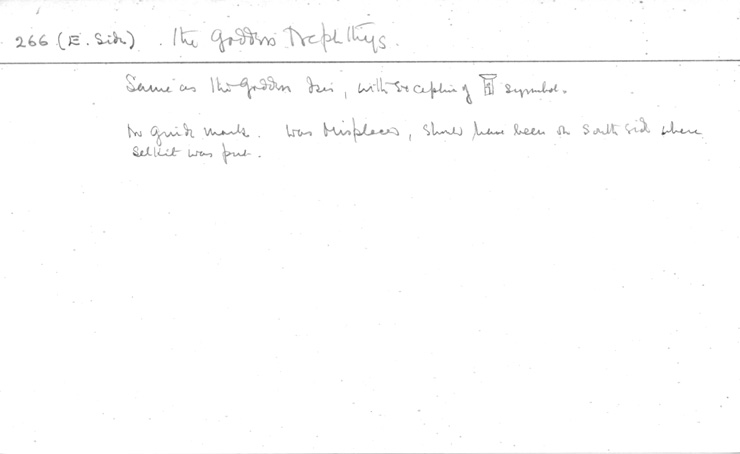 266 (E. Side) . The Goddess Nephthys.
Same as the Goddess Isis, with exception of 𓉠 symbol.
No guide mark. Was misplaced, should have been on South side where
Selkit was put.